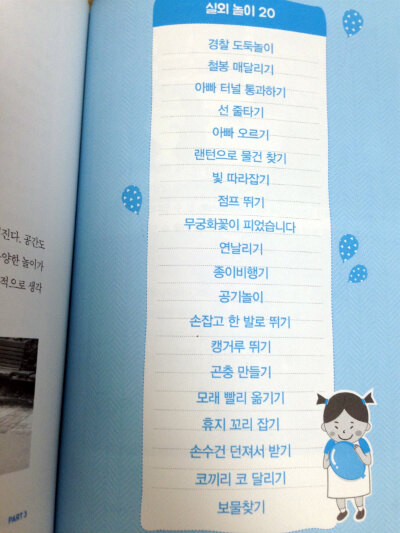 진다. 공간도
양한 놀이가
적으로 생각
PART 3
실외 놀이 20
경찰 도둑놀이
철봉 매달리기
아빠 터널 통과하기
선 줄타기
아빠 오르기
랜턴으로 물건 찾기
빛 따라잡기
점프 뛰기
무궁화꽃이 피었습니다
연날리기
종이비행기
공기놀이
손잡고 한 발로 뛰기
캥거루 뛰기
곤충 만들기
모래 빨리 옮기기
휴지 꼬리 잡기
손수건 던져서 받기
코끼리 코 달리기
보물찾기